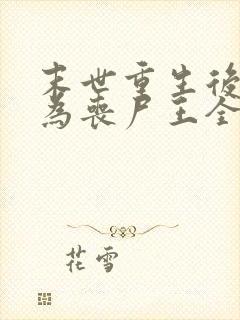 末世重生後
為喪尸王全
花雪